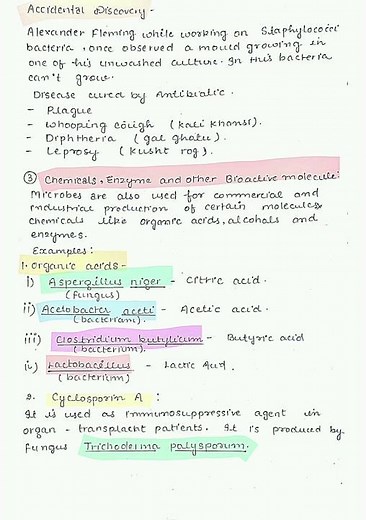 Accidental Discovery -
Alexander Fleming while working on Staphylococci
bacteria, once observed a mould growing in
one of his unwashed culture. In this bacteria
can't grow.
Disease cured by Antibiotic.
- Plague
- Whooping cough (kali khansi).
- Diphtheria (gal ghatu).
- Leprosy (kusht rog).
③ Chemicals, Enzyme and other Bioactive molecule:
Microbes are also used for commercial and
industrial production of certain molecules
chemicals like organic acids, alcohals and
enzymes.
Examples:
1. Organic acids -
i) Aspergillus niger - Citric acid.
(fungus)
ii) Acetobacter aceti - Acetic acid.
(bacterium).
iii) Clostridium butylicum - Butyric acid
(bacterium).
iv) Lactobacillus - Lactic Acid.
(bacterium)
2. Cyclosporin A :
It is used as immunosuppressive agent in
organ - transplant patients. It is produced by
fungus Trichoderma polysporum.